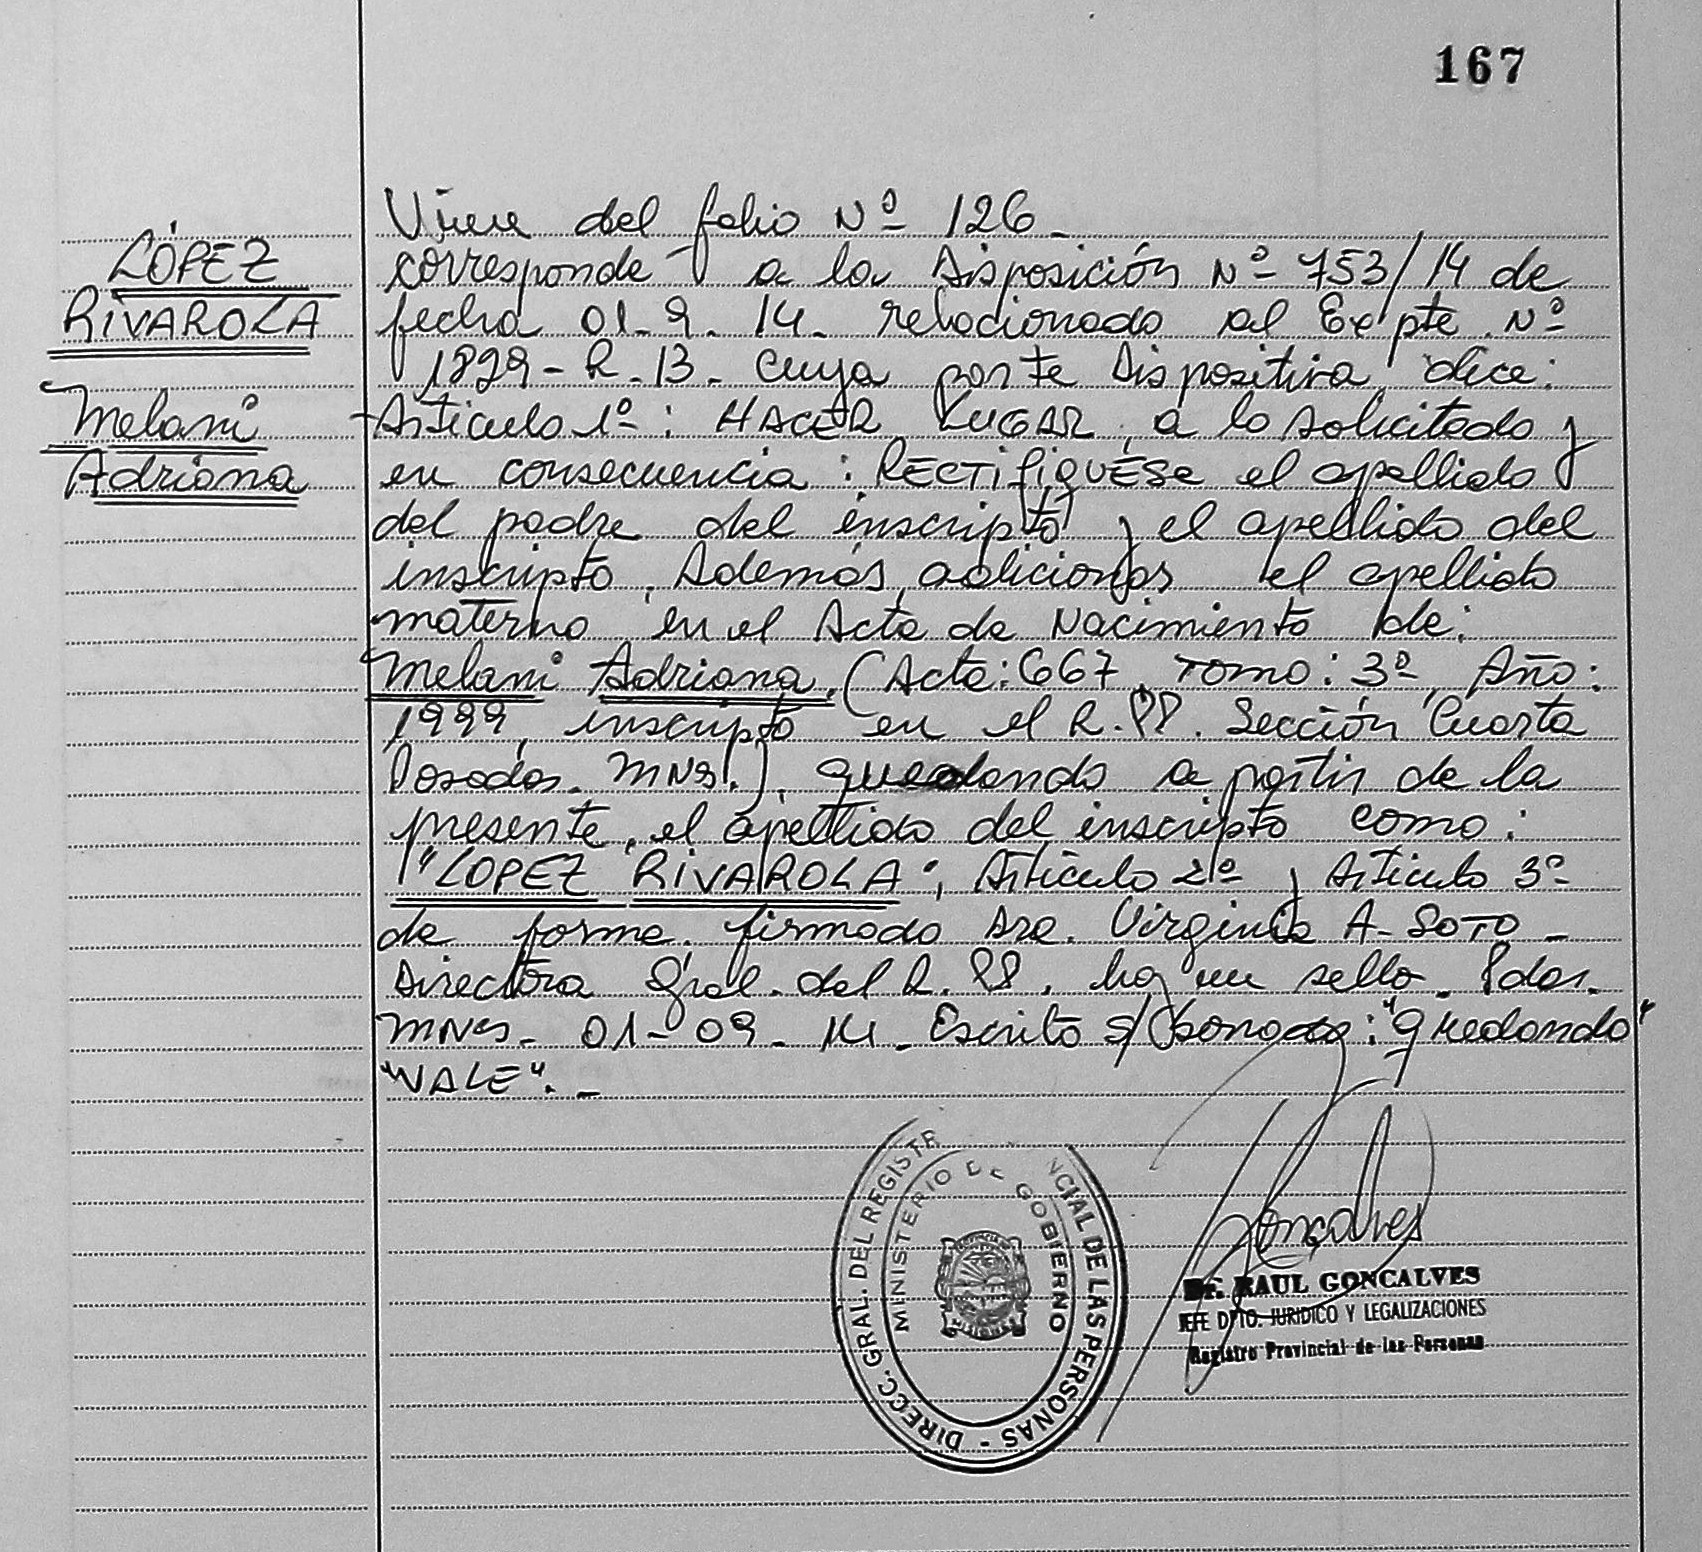 167
LÓPEZ
RIVAROLA
Melani
Adriana
Viene del folio Nº 126 -
corresponde a la Disposición Nº 753/14 de
fecha 01-9-14- relacionado al Expte. Nº
1829-R-13- cuya parte Dispositiva dice:
Articulo 1º: HACER LUGAR, a lo solicitado y
en consecuencia: RECTIFIQUÉSE el apellido
del padre del inscripto y el apellido del
inscripto. Además, adicionar el apellido
materno en el Acta de Nacimiento de:
Melani Adriana, (Acta: 667, Tomo: 3º, Año:
1999, inscripto en el R.PP. Sección Cuarta
Posadas. MNS.), quedando a partir de la
presente, el apellido del inscripto como:
"LOPEZ RIVAROLA", Articulo 2º y Articulo 3º
de forma. firmado Dra. Virginia A- SOTO -
Directora Gral. del R. PP. hay un sello. Pdas.
MNS- 01-09-14- Escrito s/ : "quedando"
"VALE". -
DIRECC. GRAL. DEL REGISTR NCIAL DE LAS PERSONAS -
MINISTERIO DE GOBIERNO
MISIONES
Goncalves
Dr. RAUL GONCALVES
JEFE DPTO. JURIDICO Y LEGALIZACIONES
Registro Provincial de las Personas